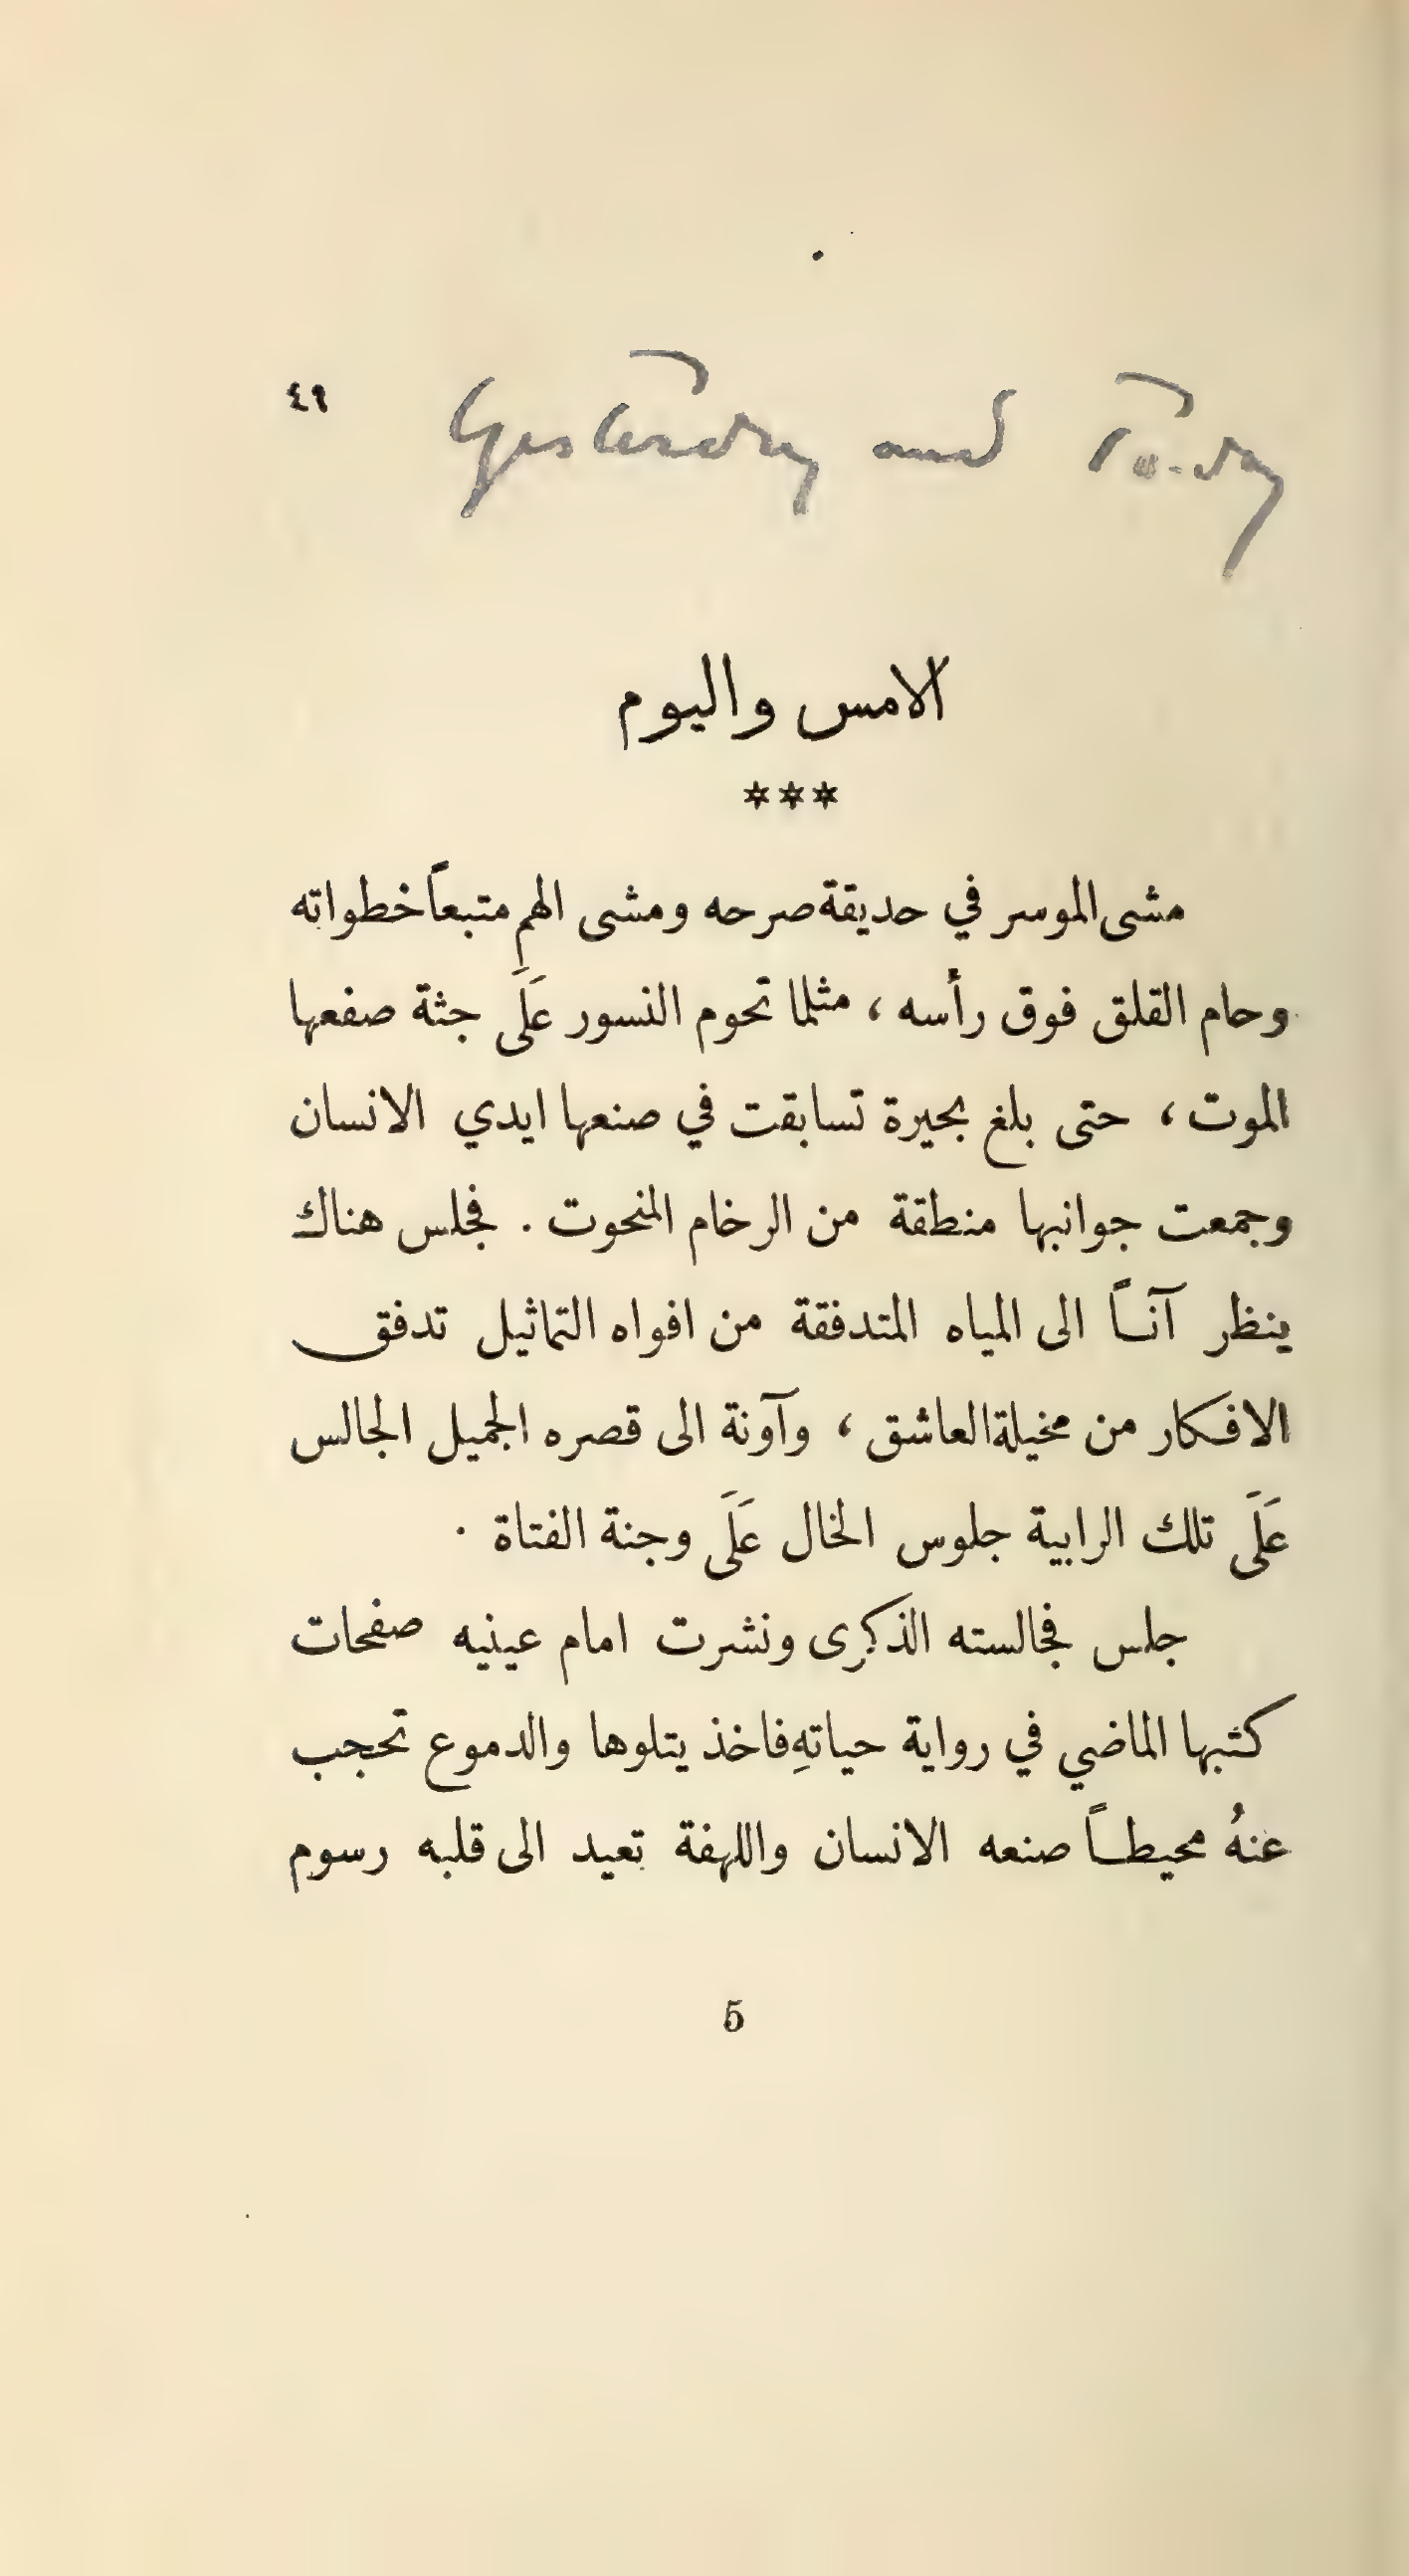 ٤٩
Yesterday and To-day
الامس واليوم
***
مشى الموسر في حديقة صرحه ومشى الهم متبعاً خطواته
وحام القلق فوق رأسه ، مثلما تحوم النسور عَلَى جثة صفعها
الموت ، حتى بلغ بحيرة تسابقت في صنعها ايدي الانسان
وجمعت جوانبها منطقة من الرخام المنحوت . فجلس هناك
ينظر آنــاً الى المياه المتدفقة من افواه التماثيل تدفق
الافكار من مخيلة العاشق ، وآونة الى قصره الجميل الجالس
عَلَى تلك الرابية جلوس الخال عَلَى وجنة الفتاة .
جلس فجالسته الذكرى ونشرت امام عينيه صفحات
كتبها الماضي في رواية حياتهِ فاخذ يتلوها والدموع تحجب
عنهُ محيطــاً صنعه الانسان واللهفة تعيد الى قلبه رسوم
5